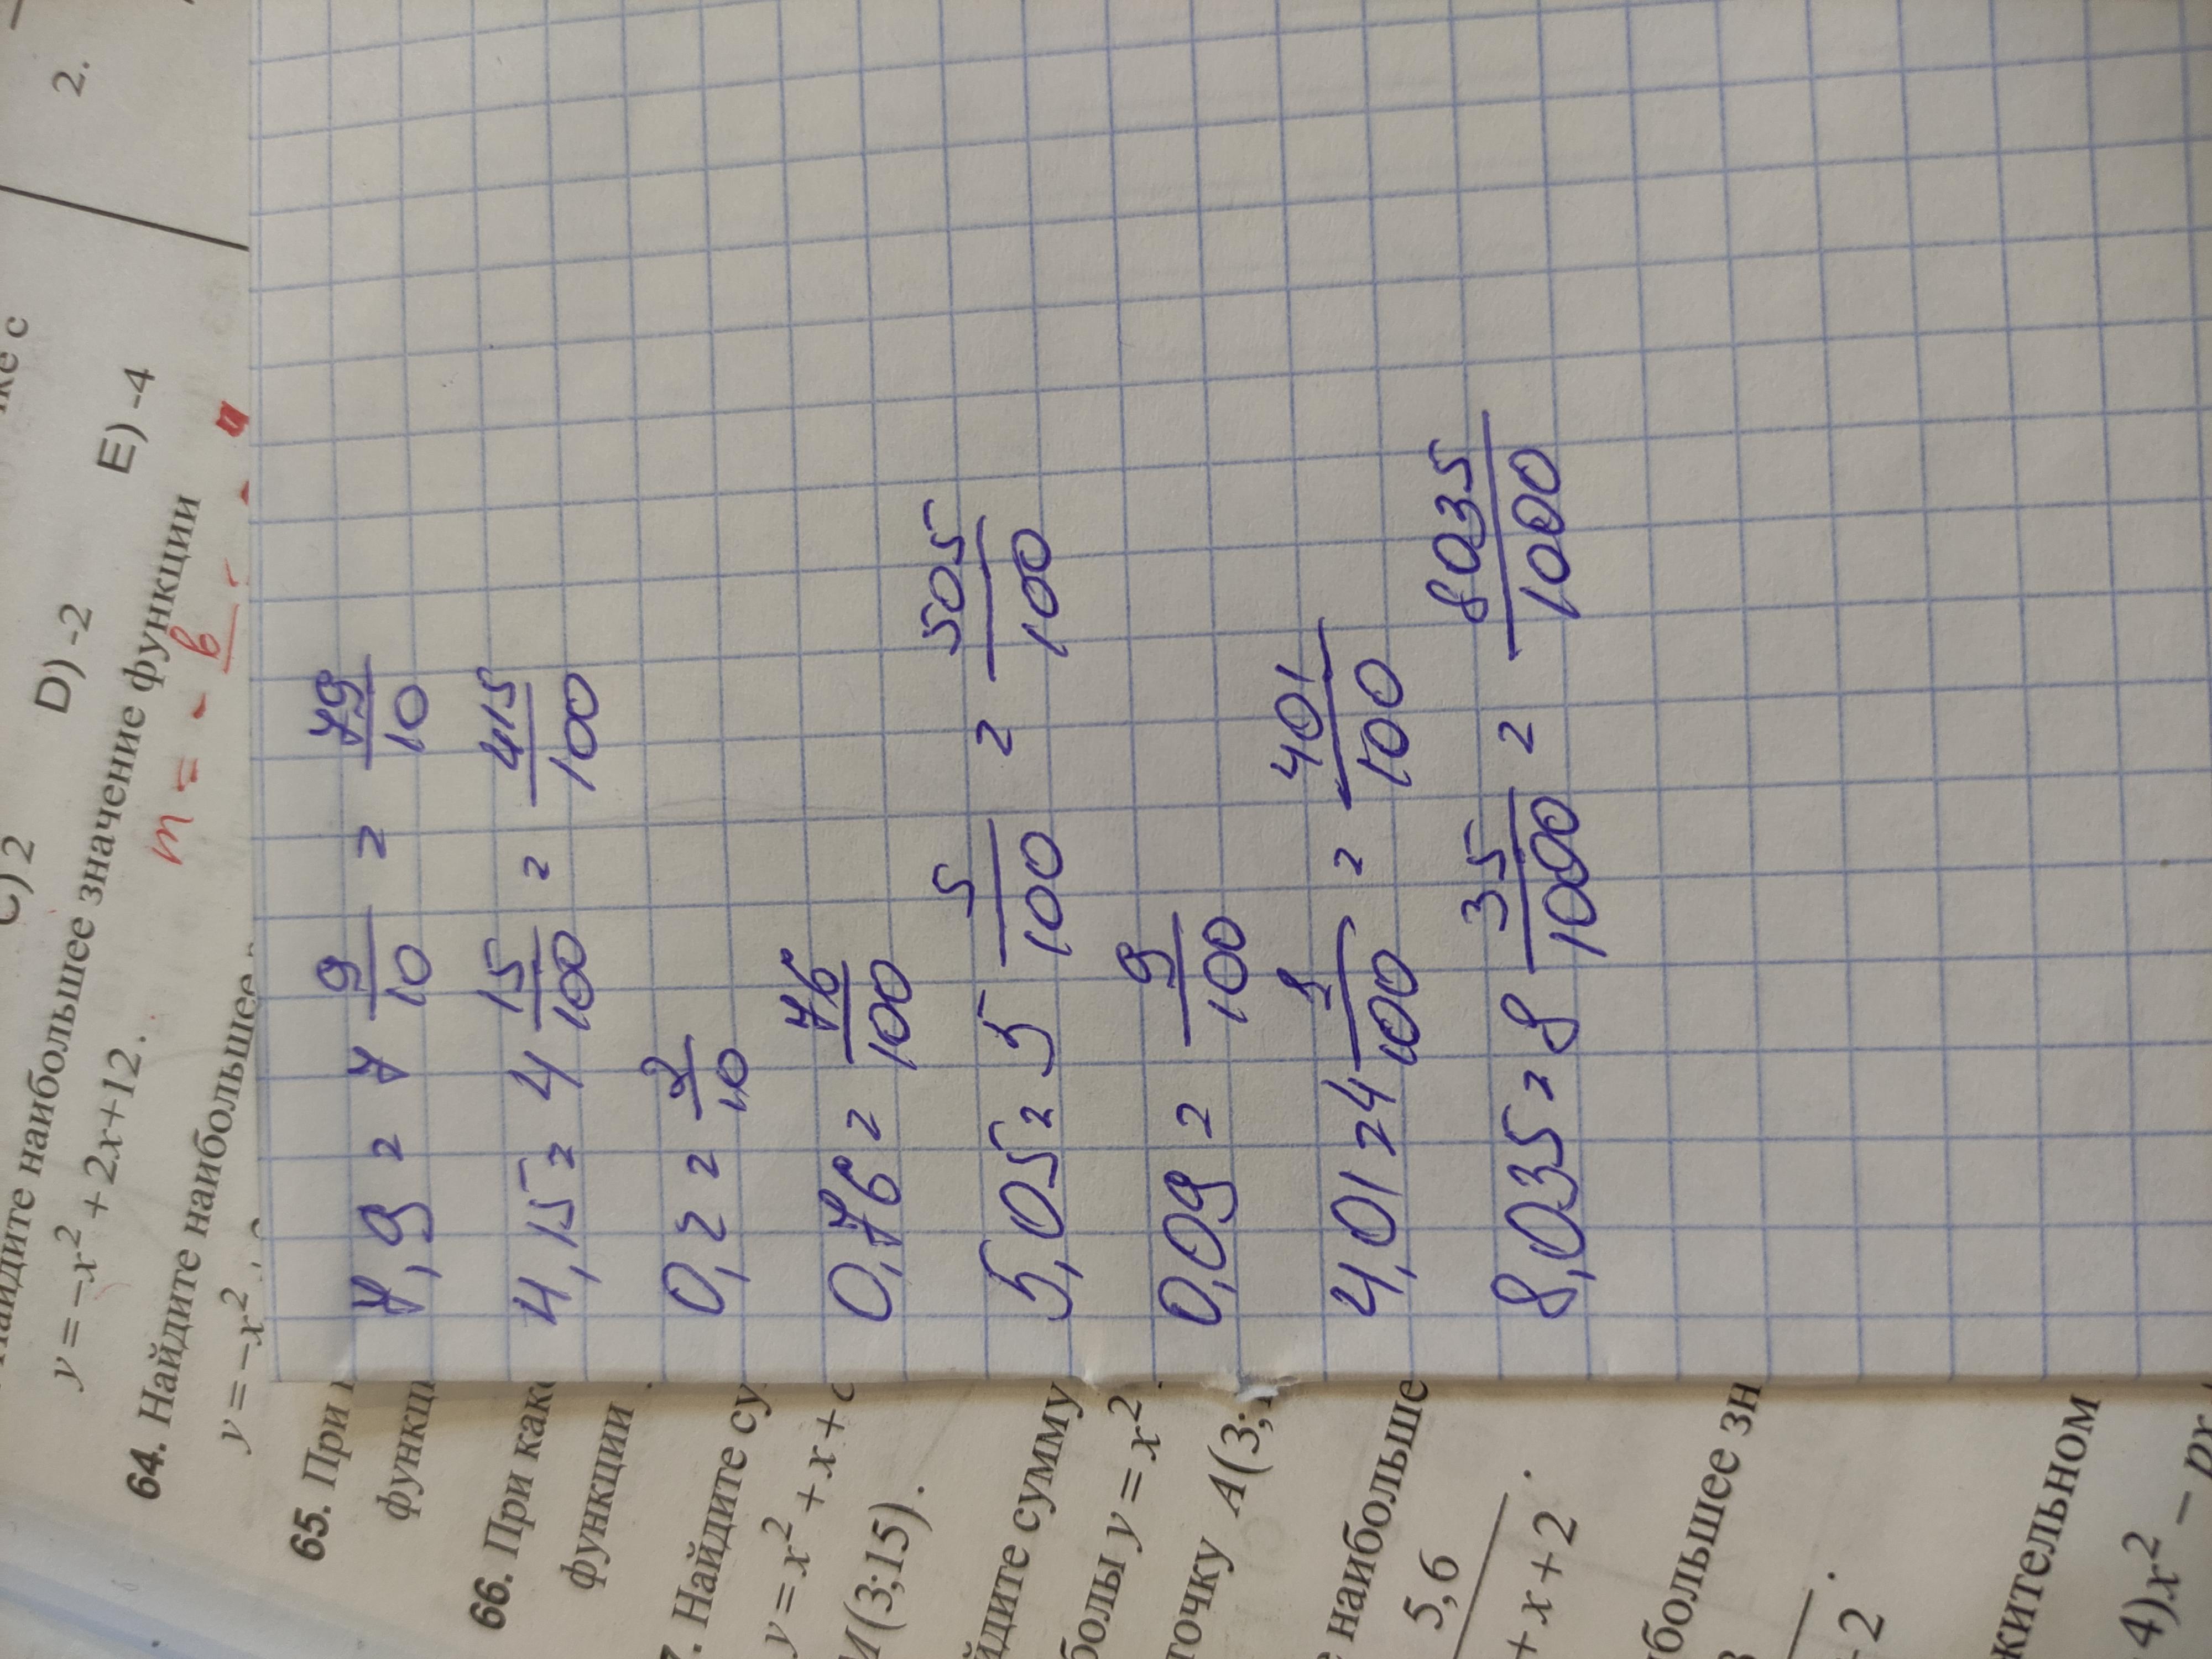 2.
же с
C) 2 D) -2 E) -4
Найдите наибольшее значение функции
y = −x² + 2x + 12. m = - в
64. Найдите наибольшее
y = −x²
65. При
функци
66. При как
функции
7. Найдите су
y = x² + x +
M(3;15).
йдите сумму
болы y = x²
точку A(3;
наибольше
5,6
+ x + 2
ибольшее зн
2
жительном
4)x² − px
7,9 = 7 9/10 = 79/10
4,15 = 4 15/100 = 415/100
0,2 = 2/10
0,76 = 76/100
5,05 = 5 5/100 = 505/100
0,09 = 9/100
4,01 = 4 1/100 = 401/100
8,035 = 8 35/1000 = 8035/1000